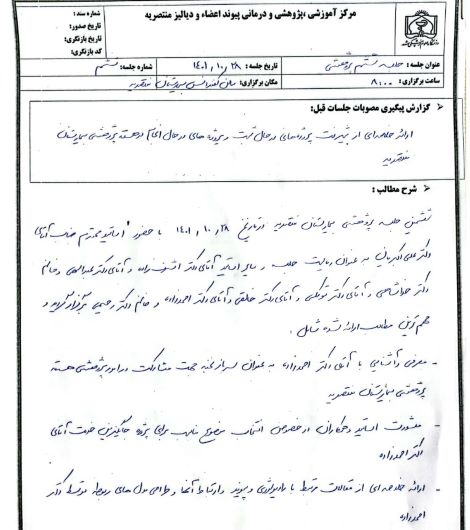 مرکز آموزشی ،پژوهشی و درمانی پیوند اعضاء و دیالیز منتصریه
شماره سند :
تاریخ صدور:
تاریخ بازنگری:
کد بازنگری:
عنوان جلسه : جلسه ششم پژوهشی
تاریخ جلسه : ۱۴۰۱,۱۰,۲۸
شماره جلسه: ششم
ساعت برگزاری : ۸:۰۰
مکان برگزاری: سالن کنفرانس بیمارستان منتصریه
گزارش پیگیری مصوبات جلسات قبل:
ارائه خلاصه‌ای از پروژه‌های در حال ثبت و پروژه های در حال انجام در هسته پژوهشی بیمارستان
منتصریه
شرح مطالب :
ششمین جلسه پژوهشی بیمارستان منتصریه در تاریخ ۱۴۰۱,۱۰,۲۸ با حضور اساتید محترم جناب آقای
دکتر به عنوان ریاست جلسه و سایر اساتید آقای دکتر و آقای دکتر و خانم
دکتر و آقای دکتر و آقای دکتر و آقای دکتر احمدزاده و خانم دکتر رحیمی برگزار گردید و
مهم ترین مطالب ارائه شده شامل :
- معرفی و آشنایی با آقای دکتر احمدزاده به عنوان جهت مشارکت در امور پژوهشی هسته
پژوهشی بیمارستان منتصریه
- مشورت اساتید و همکاران در خصوص انتخاب موضوع مناسب برای پروژه جناب آقای
دکتر احمدزاده
- ارائه خلاصه ای از مقالات مرتبط با رادیولوژی و پیوند و ارتباط آنها و طراحی مدل های مربوطه توسط دکتر
احمدزاده